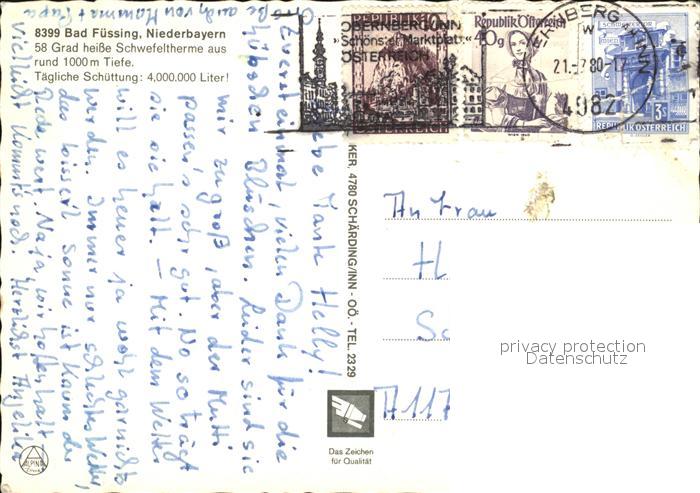 8399 Bad Füssing, Niederbayern
58 Grad heiße Schwefeltherme aus
rund 1000 m Tiefe.
Tägliche Schüttung: 4,000.000 Liter!
Liebe Tante Helly!
Zuerst einmal, vielen Dank für die
hübschen Blüschen. Leider sind sie
mir zu groß, aber der Mutti
passen's sehr gut. No so trägt
sie sie halt. – Mit dem Wetter
will es heuer ja wohl garnichts
werden. Immer nur schlechtes Wetter,
das bisserl Sonne ist kaum der
Rede wert. Na ja, wir hoffen halt
vielleicht kommt's noch. Herzlichst
Grüße auch von Mamma + Papa
OBERNBERG/INN
"Schönster Marktplatz"
ÖSTERREICH
REPUBLIK ÖSTERREICH
Republik Österreich
40g
OBERNBERG AM INN
21.-7.80-17
4982
3S
REPUBLIK ÖSTERREICH
KER, 4780 SCHÄRDING/INN - OÖ. - TEL. 2329
An Frau
H
Sc
A 117
privacy protection
Datenschutz
Das Zeichen
für Qualität
ALPINA